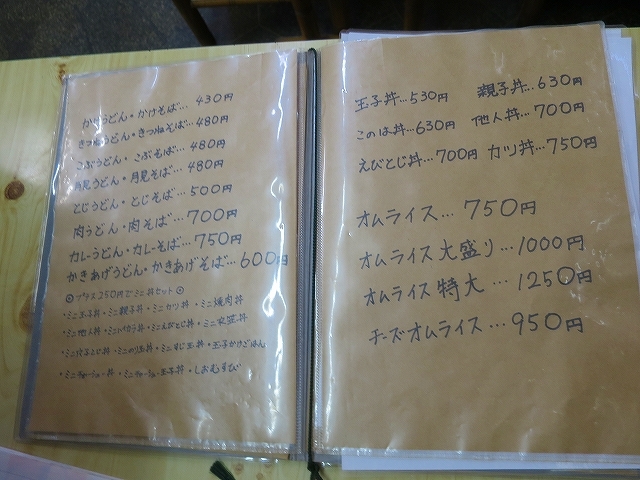 かけうどん・かけそば… 430円
きつねうどん・きつねそば…480円
こぶうどん・こぶそば…480円
月見うどん・月見そば…480円
とじうどん・とじそば…500円
肉うどん・肉そば…700円
カレーうどん・カレーそば…750円
かきあげうどん・かきあげそば…600円
◎プラス250円でミニ丼セット◎
・ミニ玉子丼・ミニ親子丼・ミニカツ丼・ミニ焼肉丼
・ミニ他人丼・ミニいくら丼・ミニえびとじ丼・ミニ衣笠丼
・ミニ穴子とじ丼・ミニのり玉丼・ミニすじ玉丼・玉子かけごはん
・ミニチャーシュー丼・ミニチャーシュー玉子丼・しおむすび
玉子丼…530円 親子丼…630円
このは丼…630円 他人丼…700円
えびとじ丼…700円 カツ丼…750円
オムライス…750円
オムライス大盛り…1000円
オムライス特大…1250円
チーズオムライス…950円